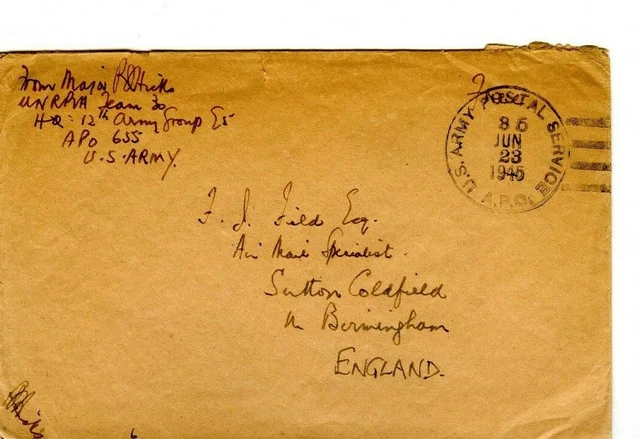 From Major R Hicks
UNRRA Team 30
HQ: 12th Army Group G5
APO 655
U.S. ARMY.
Free
U.S. ARMY POSTAL SERVICE
JUN
23
1945
A.P.O.
F. J. Field Esq.
Air Mail Specialist.
Sutton Coldfield
N Birmingham
ENGLAND.
Hicks